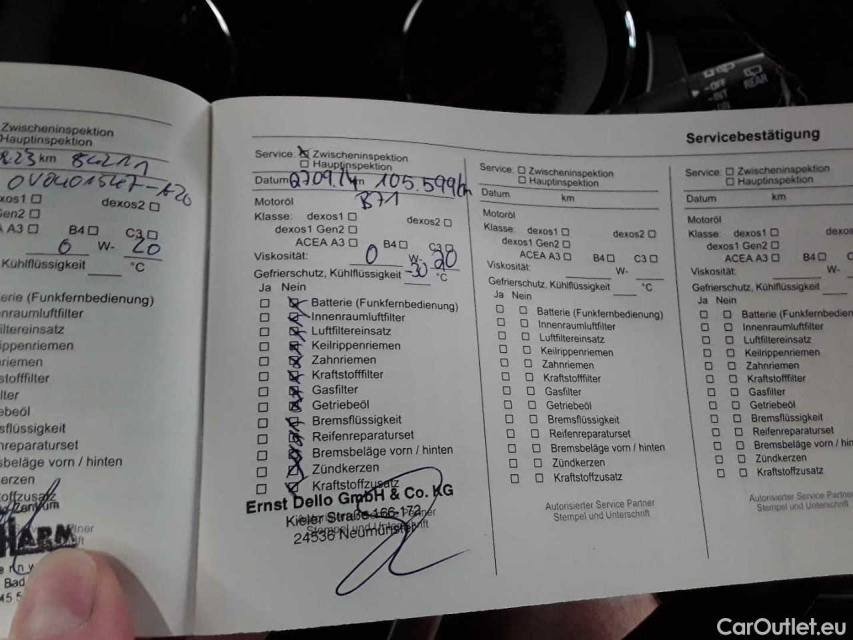 Servicebestätigung
Zwischeninspektion
Hauptinspektion
km 84211
dexos2
Gen2
A3 B4 C3
0 W- 20
Kühlflüssigkeit °C
(Funkfernbedienung)
Service: Zwischeninspektion
Hauptinspektion
Datum km 105.599km
Motoröl B71
Klasse: dexos1 dexos2
dexos1 Gen2
ACEA A3 B4 C3
Viskosität: 0 W- 20
Gefrierschutz, Kühlflüssigkeit -30 °C
Ja Nein
Batterie (Funkfernbedienung)
Innenraumluftfilter
Luftfiltereinsatz
Keilrippenriemen
Zahnriemen
Kraftstofffilter
Gasfilter
Getriebeöl
Bremsflüssigkeit
Reifenreparaturset
Bremsbeläge vorn / hinten
Zündkerzen
Kraftstoffzusatz
Ernst Dello GmbH & Co. KG
Kieler Straße 166-172
24536 Neumünster
Stempel und Unterschrift
Service: Zwischeninspektion
Hauptinspektion
Datum km
Motoröl
Klasse: dexos1 dexos2
dexos1 Gen2
ACEA A3 B4 C3
Viskosität: W-
Gefrierschutz, Kühlflüssigkeit °C
Ja Nein
Batterie (Funkfernbedienung)
Innenraumluftfilter
Luftfiltereinsatz
Keilrippenriemen
Zahnriemen
Kraftstofffilter
Gasfilter
Getriebeöl
Bremsflüssigkeit
Reifenreparaturset
Bremsbeläge vorn / hinten
Zündkerzen
Kraftstoffzusatz
Autorisierter Service Partner
Stempel und Unterschrift
Service: Zwischeninspektion
Hauptinspektion
Datum km
Motoröl
Klasse: dexos1
dexos1 Gen2
ACEA A3 B4
Viskosität: W-
Gefrierschutz, Kühlflüssigkeit
Ja Nein
Batterie
Innenraumluftfilter
Luftfiltereinsatz
Keilrippenriemen
Zahnriemen
Kraftstofffilter
Gasfilter
Getriebeöl
Bremsflüssigkeit
Reifenreparaturset
Bremsbeläge vorn
Zündkerzen
Kraftstoffzusatz
Autorisierter Service Partner
Stempel und Unterschrift
OFF
INT
REAR
CarOutlet.eu